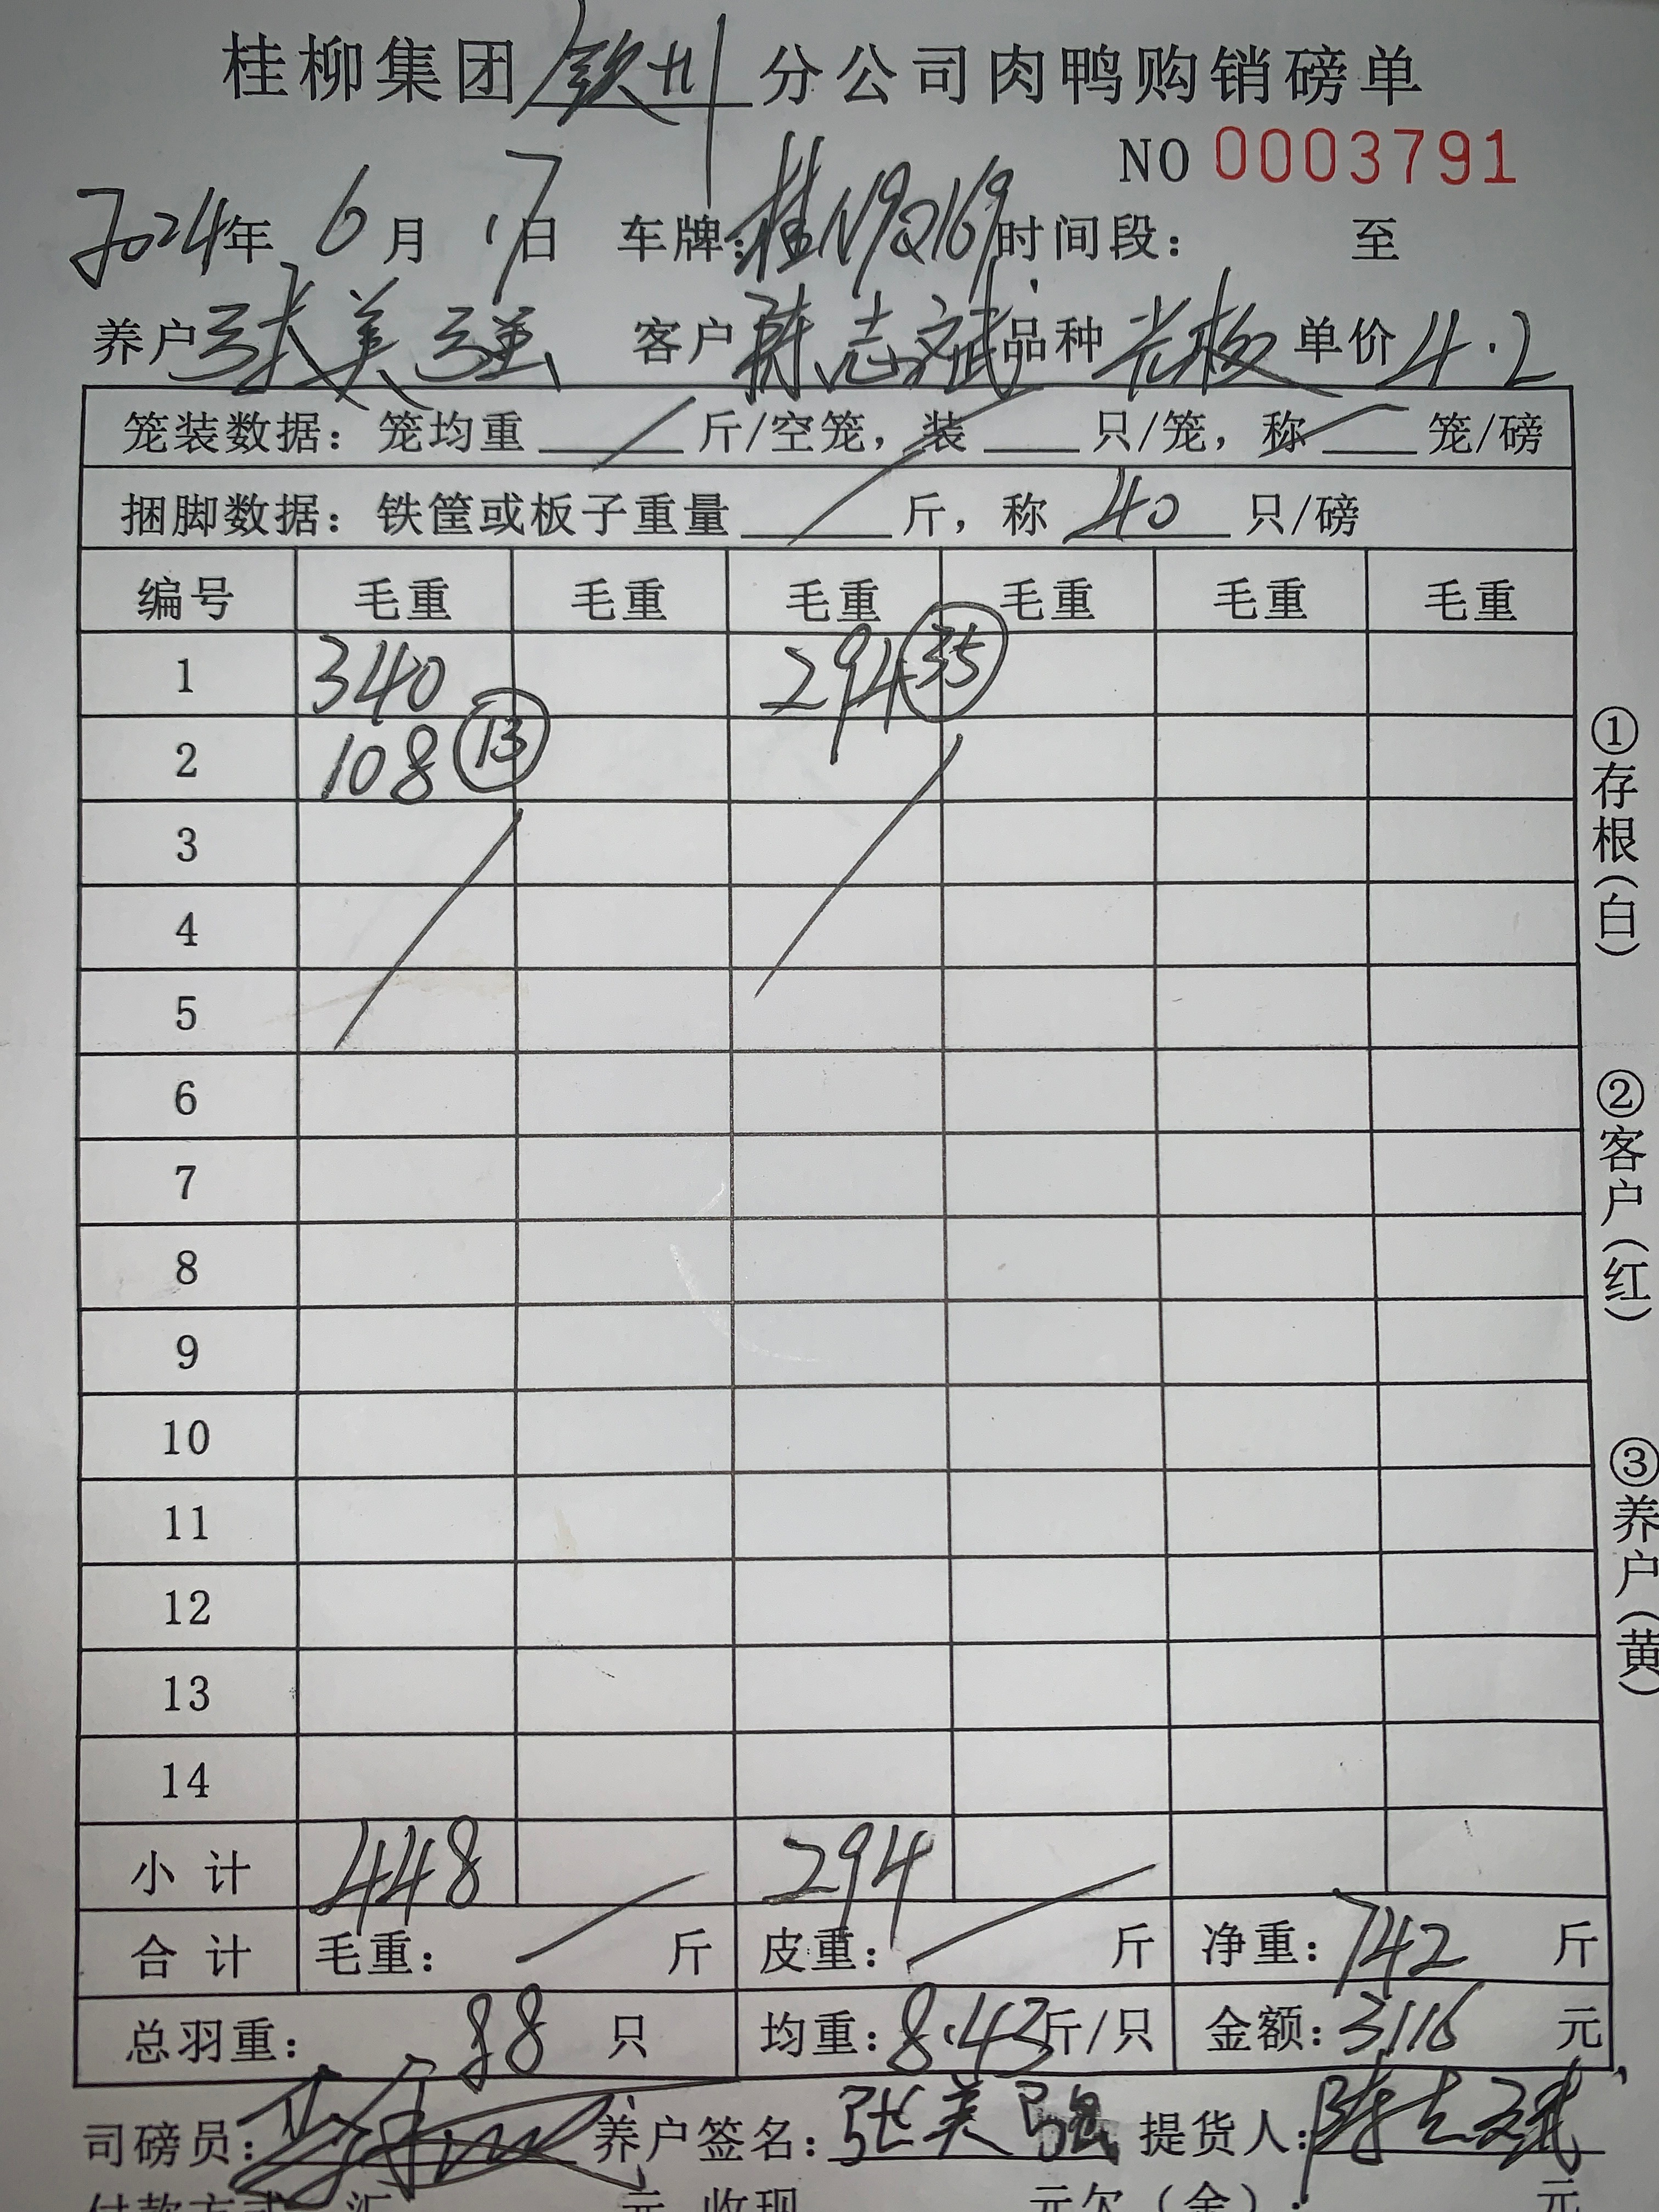 桂柳集团钦州分公司肉鸭购销磅单
NO 0003791
2024年 6月 17日 车牌:桂N9Q169 时间段: 至
养户 张美强 客户 陈志斌 品种 光板 单价 4.2
笼装数据: 笼均重 / 斤/空笼, 装 / 只/笼, 称 / 笼/磅
捆脚数据: 铁筐或板子重量 / 斤, 称 40 只/磅
编号 毛重 毛重 毛重 毛重 毛重 毛重
1 340 294 35
2 108 13
3
4
5
6
7
8
9
10
11
12
13
14
小计 448 294
合计 毛重: / 斤 皮重: / 斤 净重: 742 斤
总羽重: 88 只 均重: 8.43 斤/只 金额: 3116 元
司磅员: 养户签名: 张美强 提货人: 陈志斌
付款方式 汇 元 收现 元欠(余): 元
①存根(白)
②客户(红)
③养户(黄)